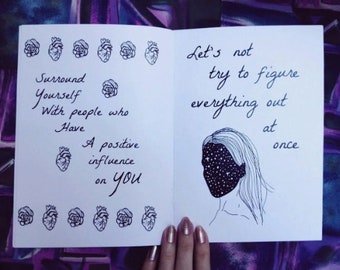 Surround
Yourself
With people who
Have
A positive
influence
on YOU
Let's not
try to figure
everything out
at
once